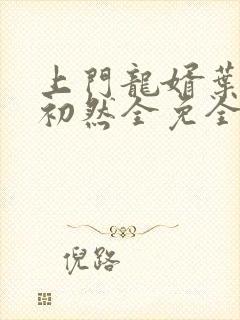 上門龍婿葉
初然全免全
倪路